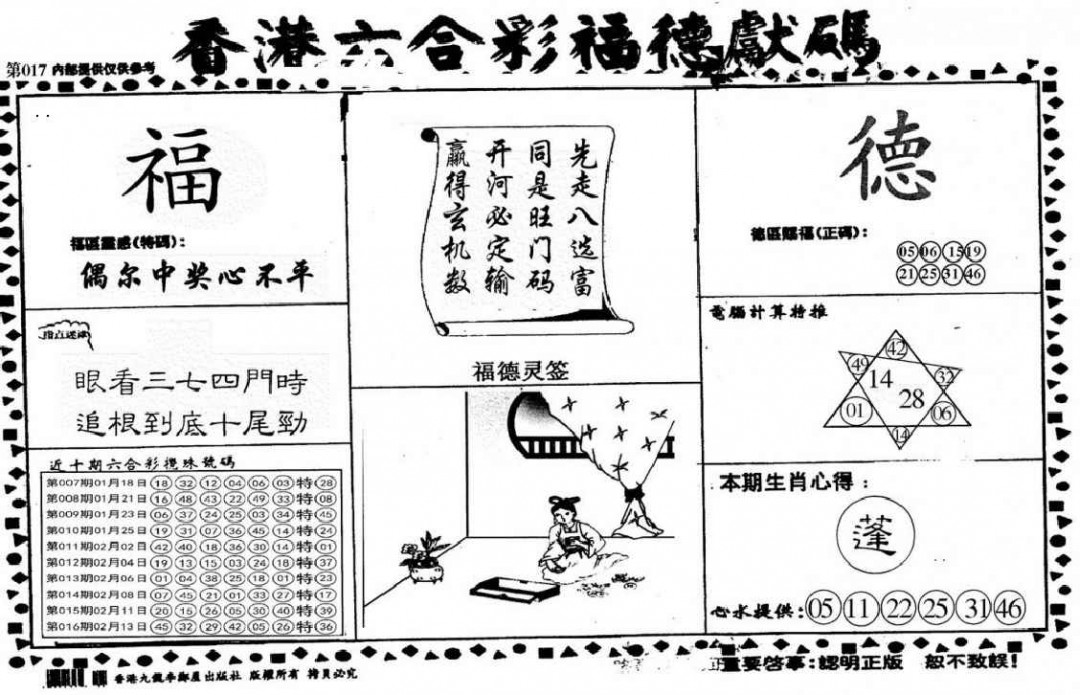 香港六合彩福德獻碼
第017 内部提供仅供参考
福
福區靈感(特碼):
偶尔中奖心不平
指点迷津
眼看三七四門時
追根到底十尾勁
近十期六合彩攪珠號碼
第007期01月18日 18 32 12 04 06 03 特 28
第008期01月21日 16 48 43 22 49 33 特 08
第009期01月23日 06 37 24 25 03 34 特 45
第010期01月25日 19 31 07 36 45 14 特 24
第011期02月02日 42 40 18 36 30 14 特 01
第012期02月04日 19 13 15 03 24 18 特 37
第013期02月06日 01 04 38 25 18 01 特 23
第014期02月08日 07 45 21 01 33 27 特 17
第015期02月11日 20 15 26 05 30 40 特 39
第016期02月13日 45 32 29 42 05 26 特 36
先走八选富
同是旺门码
开河必定输
赢得玄机数
福德灵签
德
德區賜福(正碼):
05 06 15 19
21 25 31 46
電腦計算特推
42
49 32
14
28
01 06
14
本期生肖心得:
蓬
心水提供: 05 11 22 25 31 46
香港九龍 出版社 版權所有 拷貝必究
重要啓事:認明正版 恕不致誤!